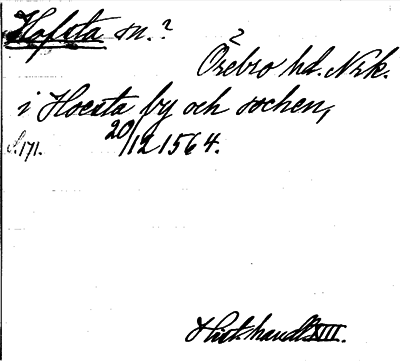 Hofsta sn.?
Örebro hd. Nrk.
i Hoersta by och sochen,
S. 171. 20/12 1564.
Hist. handl. XIII.